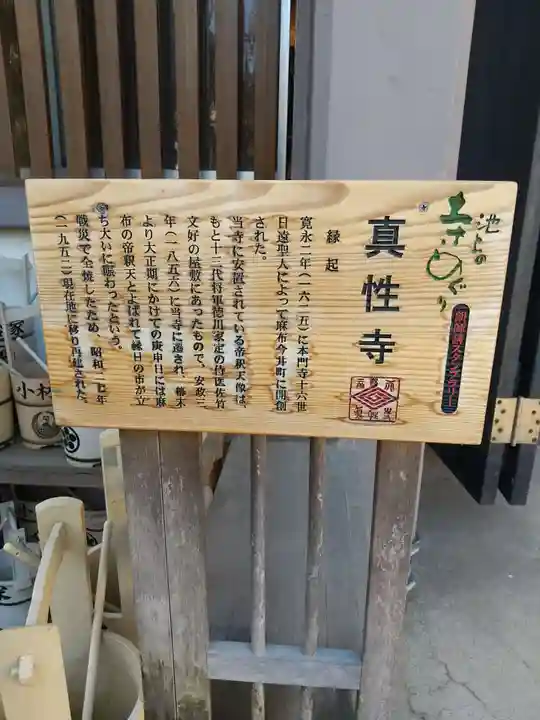 池上の
寺めぐり
御朱印スタンプラリー
真性寺
縁起
寛永二年（一六二五）に本門寺十六世
日遠聖人によって麻布今井町に開創
された。
当寺に安置されている帝釈天像は、
もと十三代将軍徳川家定の侍医佐竹
文好の屋敷にあったもので、安政三
年（一八五六）に当寺に遷され、幕末
より大正期にかけての庚申日には麻
布の帝釈天とよばれて縁日の市が立
ち大いに賑わったという。
戦災で全焼したため、昭和二七年
（一九五二）現在地に移り再建された。
家
小林